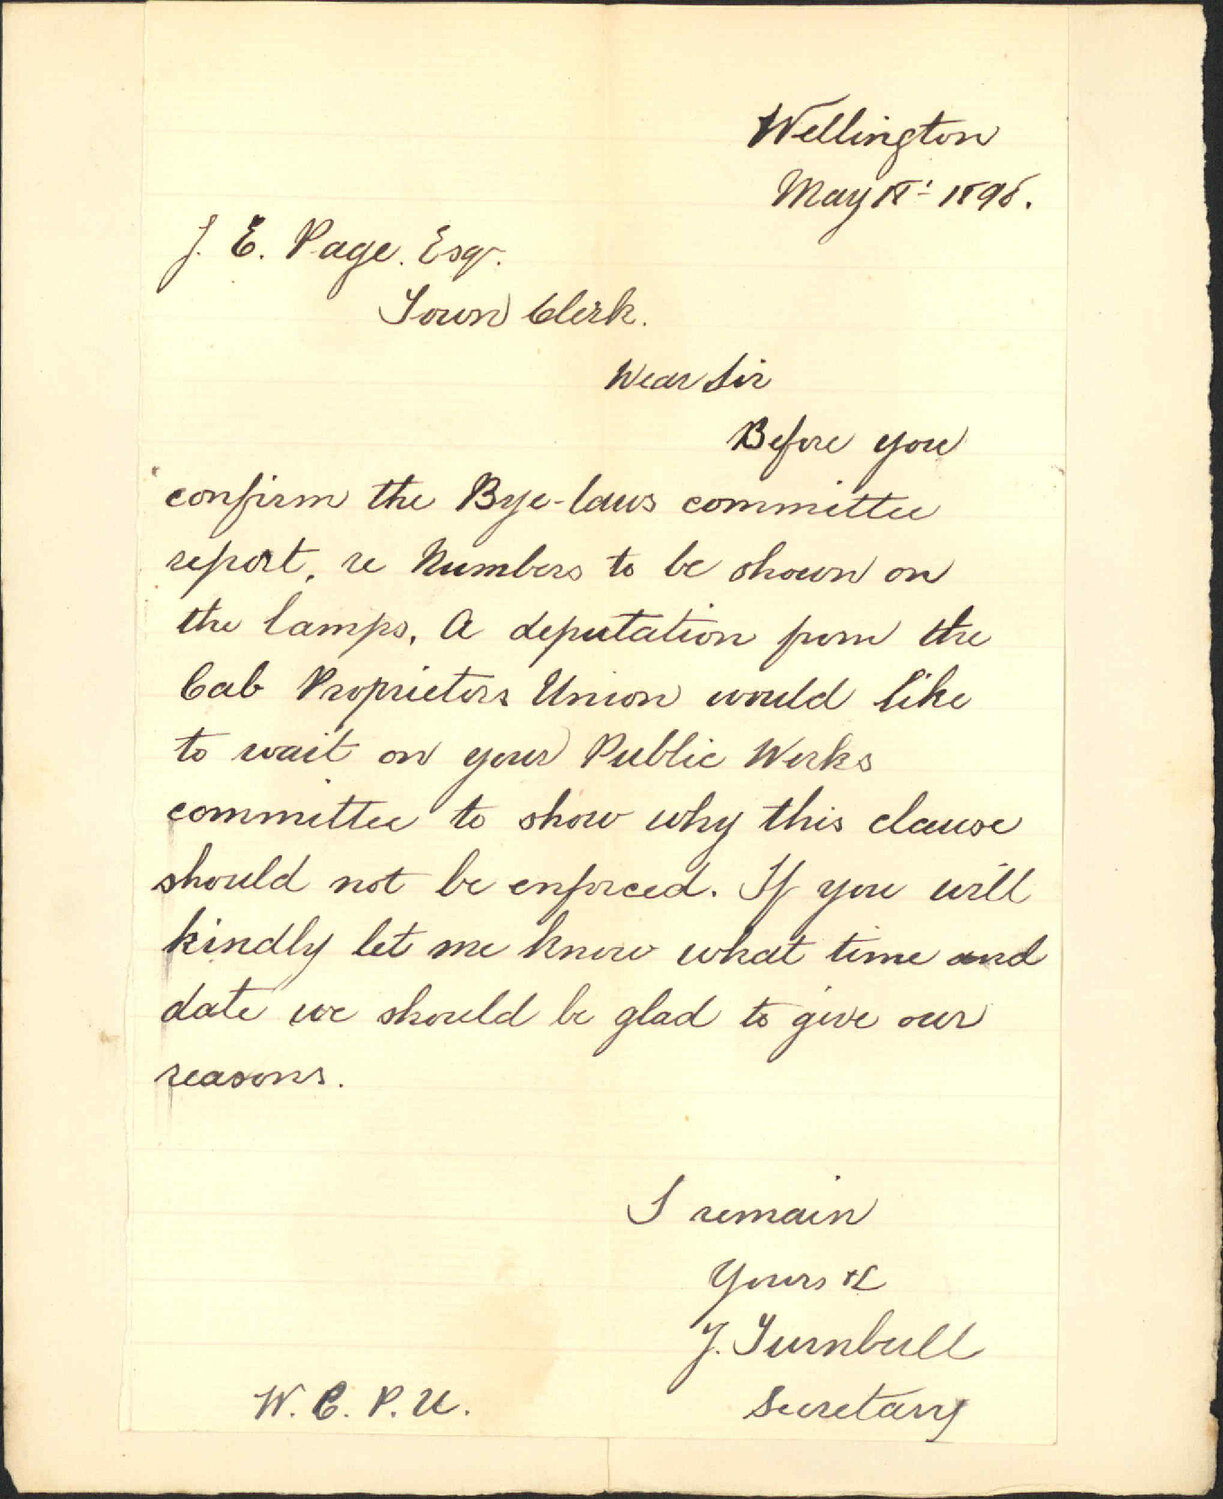 Wellington
May 18th 1896.
J. E. Page. Esqr.
Town Clerk.
Dear Sir
Before you
confirm the Bye-laws committee
report, re Numbers to be shown on
the lamps, A deputation from the
Cab Proprietors Union would like
to wait on your Public Works
committee to show why this clause
should not be enforced. If you will
kindly let me know what time and
date we should be glad to give our
reasons.
I remain
Yours &c
J. Turnbull
Secretary
W. C. P. U.